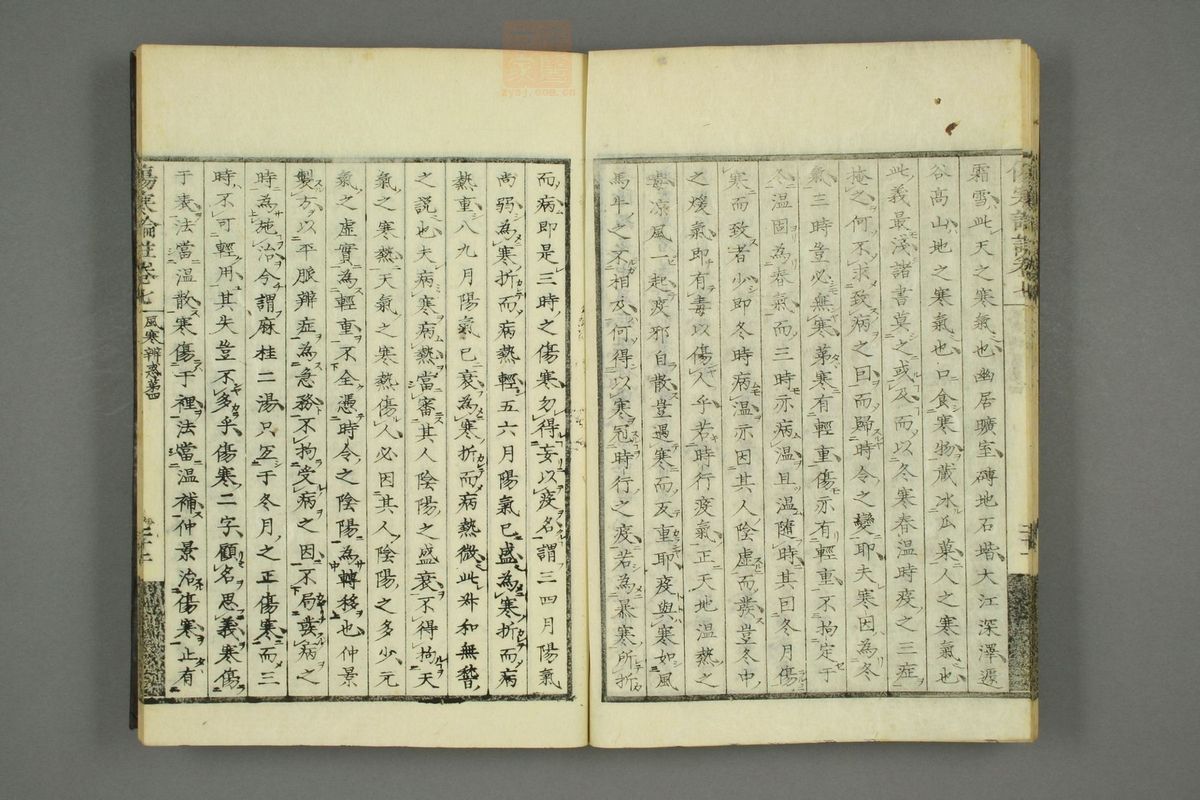 霜雪此天之寒氣也幽居曠室磚地石堦大江深澤邃
谷高山地之寒氣也口食寒物藏冰瓜菓人之寒氣也
此義最淺諸書莫之或及而以冬寒春温時疫之三症
掩之何不求致病之因而歸時令之變耶夫寒因為冬
氣三時豈必無寒苐寒有輕重傷亦有輕重不拘定于
冬温固為春氣而三時亦病温且温隨時其因冬月傷
寒而致者少即冬時病温亦因其人陰虛而發豈冬中
之煖氣即有毒以傷人乎若時行疫氣正天地温熱之
毒凉風一起疫邪自散豈遇寒而反重耶疫與寒如風
馬牛之不相及何得以寒冠時行之疫若為暴寒所折
而病即是三時之傷寒勿得妄以疫名謂三四月陽氣
尚弱為寒折而病熱輕五六月陽氣已盛為寒折而病
熱重八九月陽氣已衰為寒折而病熱微此叔和無稽
之説也夫病寒病熱當審其人陰陽之盛衰不得拘天
氣之寒熱天氣之寒熱傷人必因其人陰陽之多少元
氣之虛實為輕重不全憑時令之陰陽為轉移也仲景
製方以平脈辨症為急務不拘受病之因不局發病之
時為施治今謂麻桂二湯只宜于冬月之正傷寒而三
時不可輕用其失豈不多乎傷寒二字顧名思義寒傷
于表法當温散寒傷于裡法當温補仲景治傷寒止有
傷寒論註卷七
風寒辨惑苐四
二十一
中醫世家
zysj.com.cn